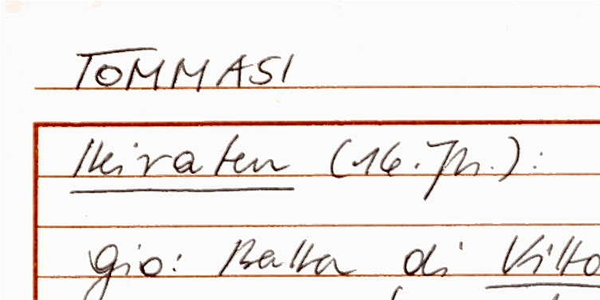 TOMMASI
Heiraten (16. Jh.):
gio: Batta di Vitto